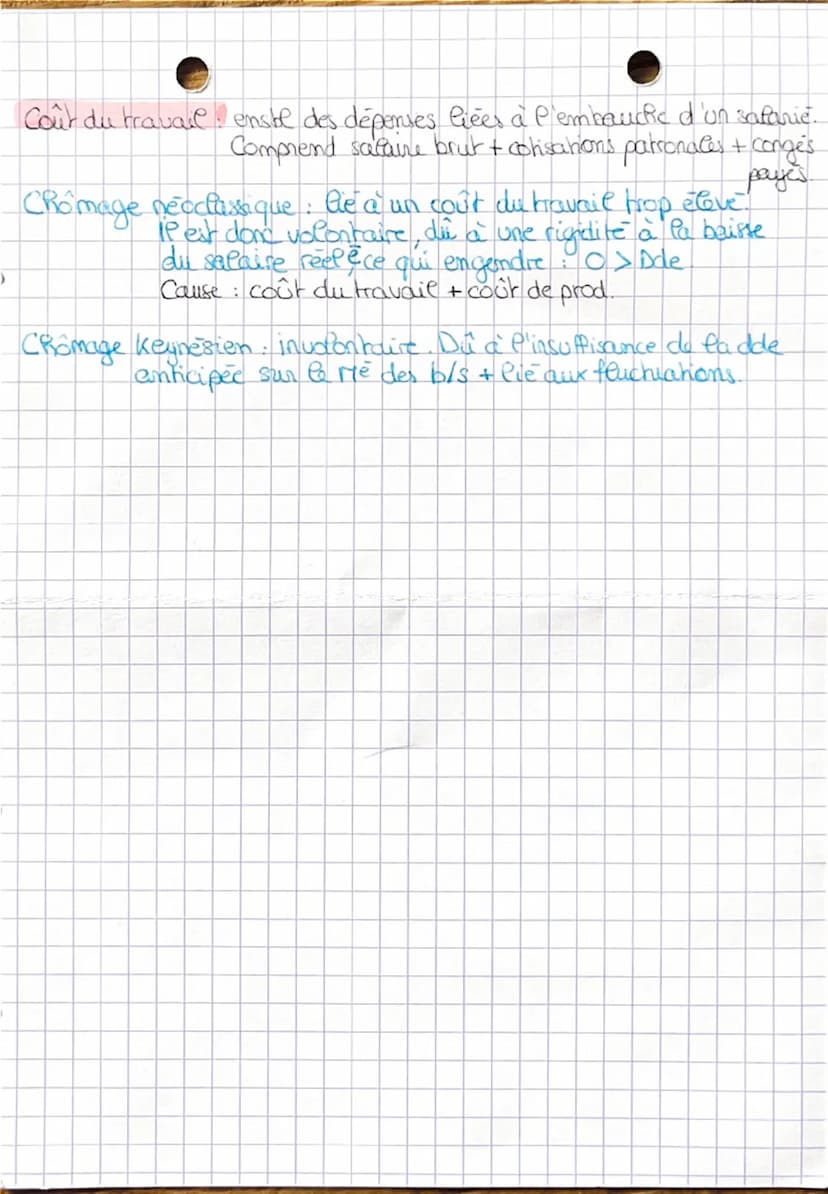 Coût du travail : enste des dépenses liées à l'embauche d'un salarié.
Comprend salaire brut + cotisations patronales + congés
payés.
Chômage néoclassique : lié à un coût du travail trop élevé.
Il est donc volontaire, dû à une rigidité à la baisse
du salaire réel ce qui engendre : O > Dde
Cause : coût du travail + coût de prod.
Chômage Keynésien : involontaire. Dû à l'insuffisance de la dde
anticipée sur le Mé des b/s + lié aux fluctuations.